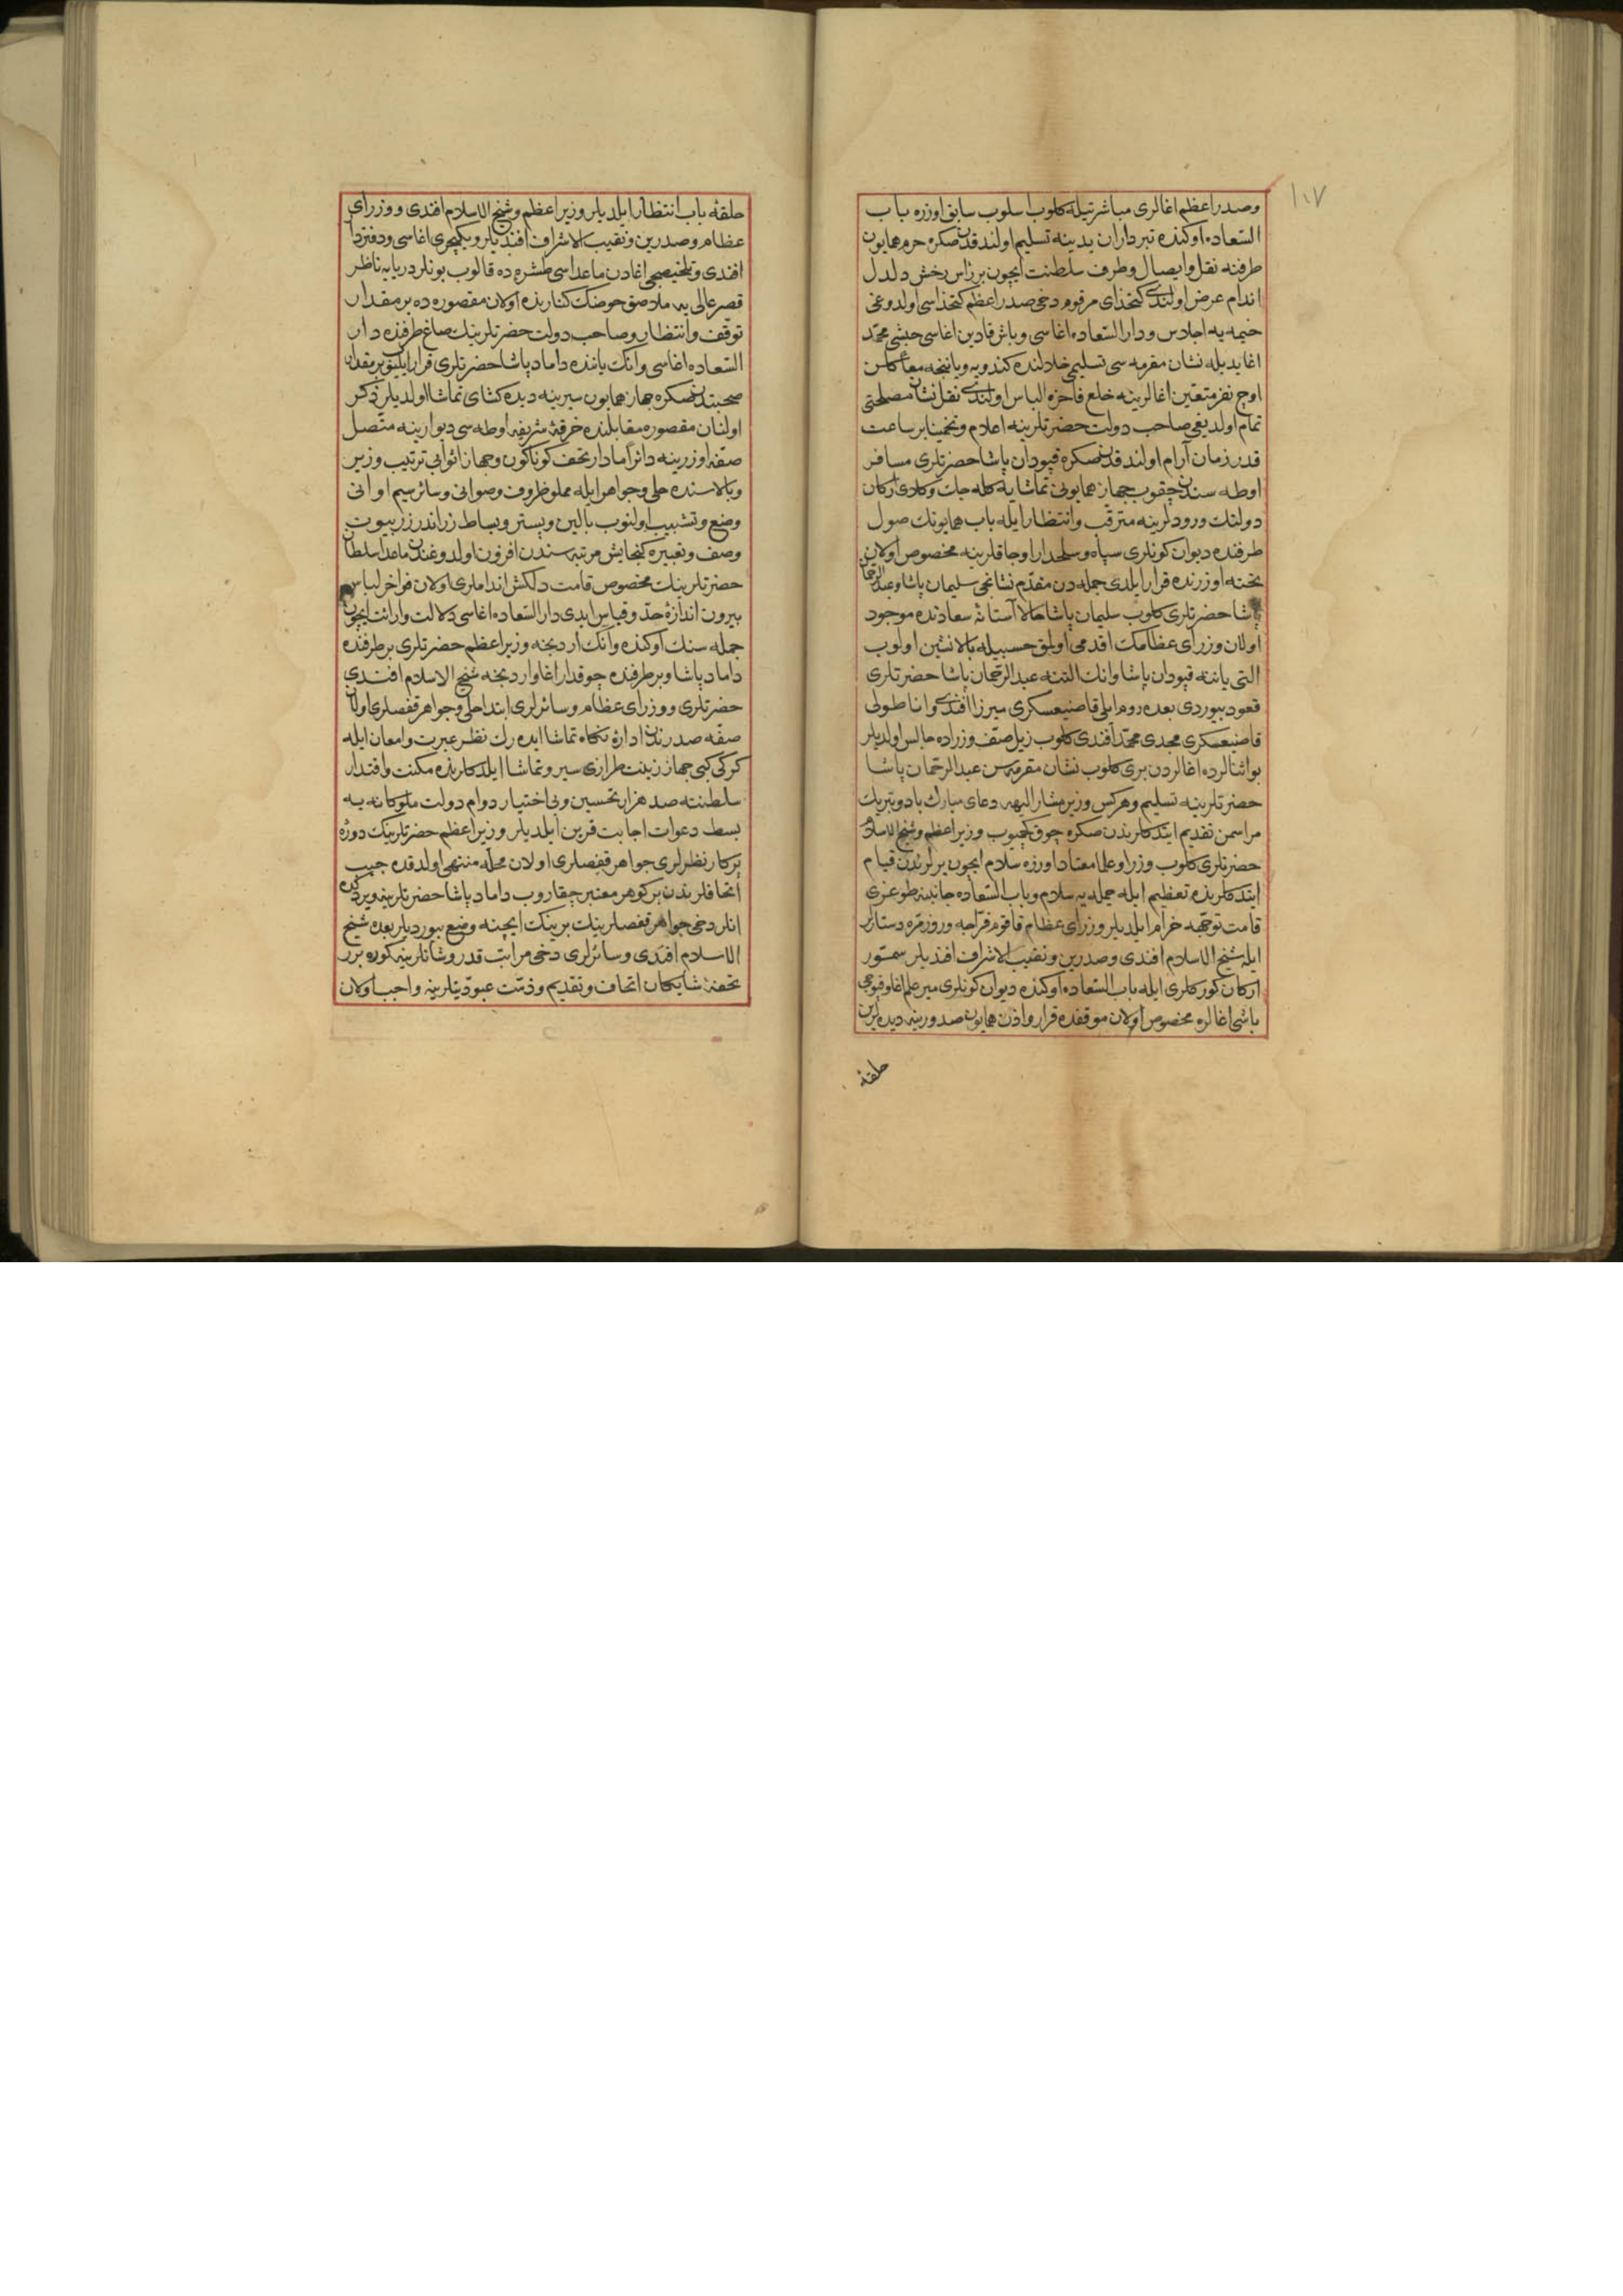 ١٠٧
وصدر اعظم اغالری مباشرتیله کلوب اسلوب سابق اوزره باب
السعاده اوکنده تبرداران یدینه تسلیم اولندقدن صکره حرم همایون
طرفنه نقل وایصال وطرف سلطنت ایچون بر رأس رخش دلدل
اندام عرض اولندی کتخدای مرقوم دخی صدر اعظم کتخداسی اولدوغی
خیمه یه اجلاس ودار السعاده اغاسی وباش قادین اغاسی حبشی محمد
اغا یدیله نشان مقرمه سی تسلیمی خلالنده کندویه ویاننجه معا کلن
اوچ نفر متعین اغالرینه خلع فاخره الباس اولندی نقل نشان مصلحتی
تمام اولدیغی صاحب دولت حضرتلرینه اعلام وتخمینا بر ساعت
قدر زمان آرام اولندقدنصکره قپودان پاشا حضرتلری مسافر
اوطه سندن چقوب جهاز همایونی تماشایه کله جك وکلای ارکان
دولتك ورودلرینه مترقب وانتظار ایله باب همایونك صول
طرفنده دیوان کونلری سپاه وسلحدار اوجاقلرینه مخصوص اولان
تخته اوزرنده قرار ایلدی جمله دن مقدم نشانجی سلیمان پاشا وعبد الرحمان
پاشا حضرتلری کلوب سلیمان پاشا حالا آستانهٔ سعادتده موجود
اولان وزرای عظامك اقدمی اولمق حسبیله بالانشین اولوب
التی یاننه قپودان پاشا وانك التنه عبد الرحمان پاشا حضرتلری
قعود بیوردی بعده روم ایلی قاضیعسکری میرزا افندی واناطولی
قاضیعسکری مجدی محمد افندی کلوب زیل صف وزراده جالس اولدیلر
بو اثنالرده اغالردن بری کلوب نشان مقرمه سن عبد الرحمان پاشا
حضرتلرینه تسلیم وهرکس وزیر مشار الیهه دعای مبارك باد وتبریك
مراسمن تقدیم ایتدکلرندن صکره چوق کچمیوب وزیر اعظم وشیخ الاسلام
حضرتلری کلوب وزرا وعلما معتاد اوزره سلام ایچون یرلرندن قیام
ایتدکلرنده تعظیم ایله جمله یه سلام وباب السعاده جانبنه طوغری
قامت توجهه خرام ایلدیلر وزرای عظام قاقوم فراجه وروزمره دستارلر
ایله شیخ الاسلام افندی وصدرین ونقیب الاشراف افندیلر سمور
ارکان کورکلری ایله باب السعاده اوکنده دیوان کونلری میر علم اغا وقپوجی
باشی اغالره مخصوص اولان موقفده قرار واذن همایون صدورینه دیده لرین
حلقهٔ
حلقهٔ باب انتظار ایلدیلر وزیر اعظم وشیخ الاسلام افندی ووزرای
عظام وصدرین ونقیب الاشراف افندیلر ویکیچری اغاسی ودفتردار
افندی وتلخیصجی اغادن ماعداسی طشره ده قالوب بونلر دریایه ناظر
قصر عالی یه ملاصق حوضك کنارنده اولان مقصوره ده بر مقدار
توقف وانتظار وصاحب دولت حضرتلرینك صاغ طرفنده دار
السعاده اغاسی وانك یاننده داماد پاشا حضرتلری قرار ایلیوب بر مقدار
صحبتدنصکره جهاز همایون سیرینه دیده کشای تماشا اولدیلر ذکر
اولنان مقصوره مقابلنده خرقهٔ شریفه اوطه سی دیوارینه متصل
صفه اوزرینه دائرا مادار تحف کوناکون وجهاز اثوابی ترتیب وزیر
وبالاسنده حلی وجواهر ایله مملو ظروف وصوانی وسائر سیم اوانی
وضع وتشبیب اولنوب بالین وبستر وبساط زر اندر زر بیوت
وصف وتعبیره کنجایش مرتبه سندن افزون اولدوغندن ماعدا سلطان
حضرتلرینك مخصوص قامت دلکش انداملری اولان فواخر لباس
بیرون اندازهٔ حد وقیاس ایدی دار السعاده اغاسی دلالت وارائت ایچون
جمله سنك اوکنده وانك اردنجه وزیر اعظم حضرتلری بر طرفنده
داماد پاشا وبر طرفنده چوقدار اغا واردنجه شیخ الاسلام افندی
حضرتلری ووزرای عظام وسائرلری ابتدا حلی وجواهر قفصلری اولان
صفه صدرندن ادارهٔ نکاه تماشا ایده رك نظر عبرت وامعان ایله
کرکی کبی جهاز زینت طرازی سیر وتماشا ایلدکلرنده مکنت واقتدار
سلطنته صد هزار تحسین وبی اختیار دوام دولت ملوکانه یه
بسط دعوات اجابت قرین ایلدیلر وزیر اعظم حضرتلرینك دورهٔ
پرکار نظرلری جواهر قفصلری اولان محله منتهی اولدقده جیب
اتحافلرندن بر کوهر معتبر چقاروب داماد پاشا حضرتلرینه ویردکده
انلر دخی جواهر قفصلرینك برینك ایچنه وضع بیوردیلر بعده شیخ
الاسلام افندی وسائرلری دخی مراتب قدر وشانلرینه کوره برر
تحفهٔ شایکان اتحاف وتقدیم وذمت عبودیتلرینه واجب اولان